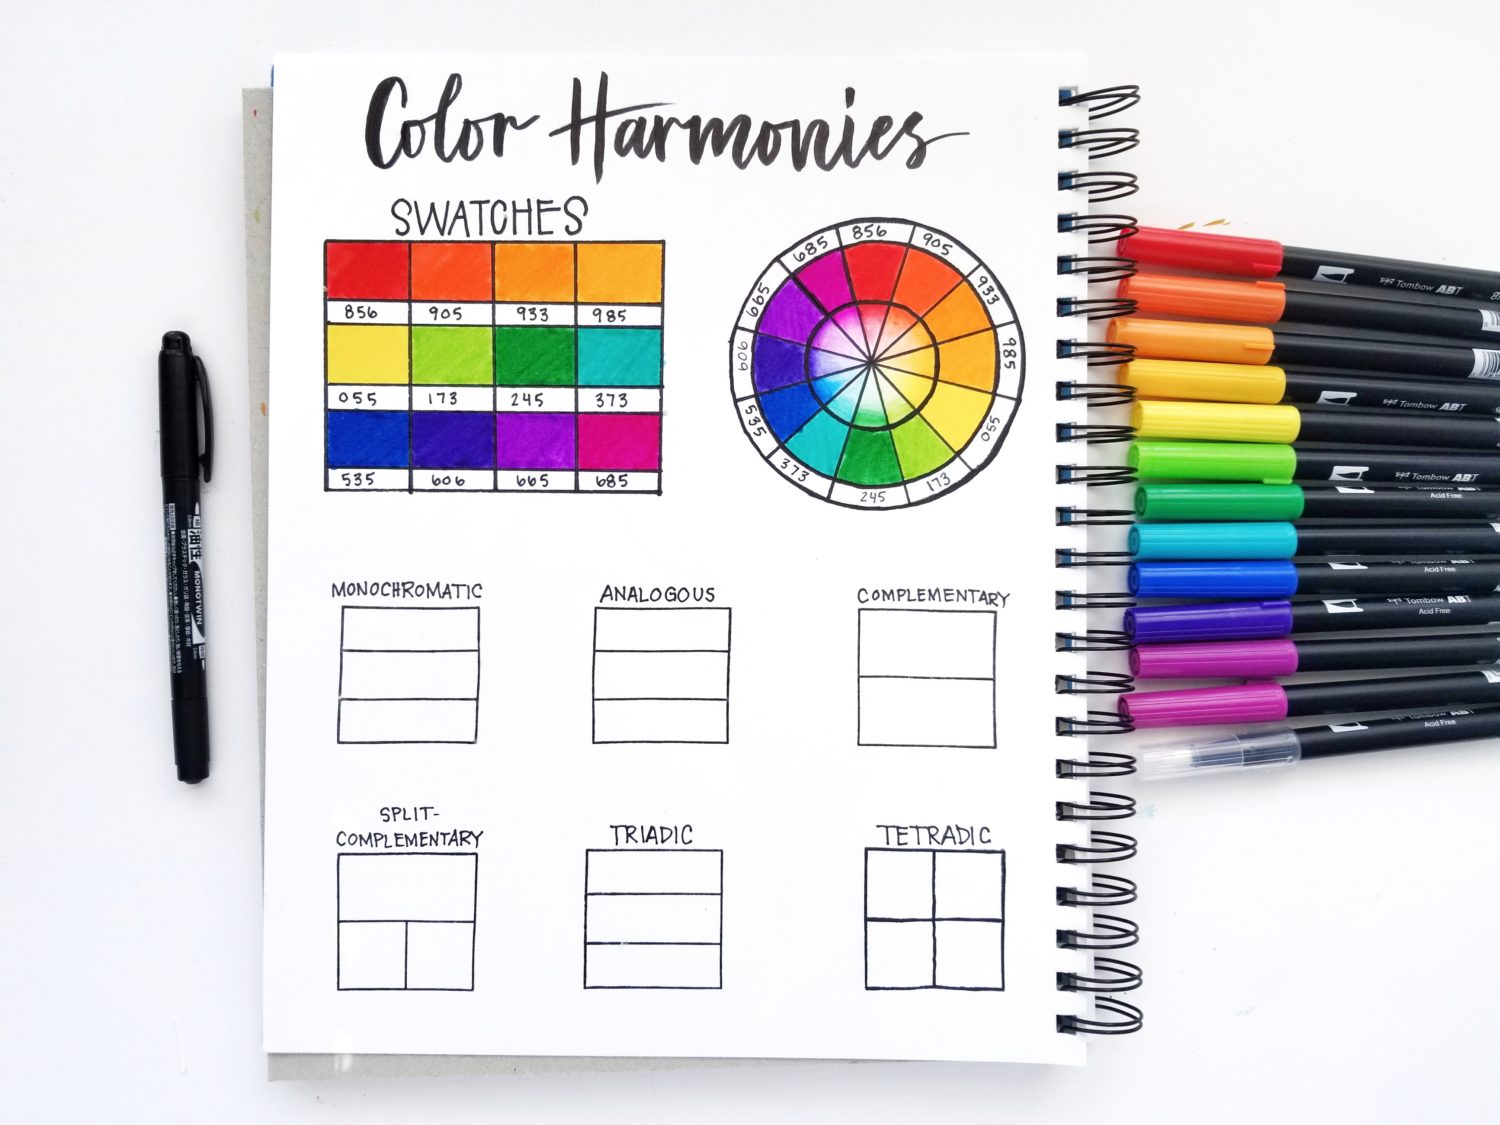 Color Harmonies
SWATCHES
856 905 933 985
055 173 245 373
535 606 665 685
856
905
933
985
055
173
245
373
535
606
665
685
MONOCHROMATIC
ANALOGOUS
COMPLEMENTARY
SPLIT-
COMPLEMENTARY
TRIADIC
TETRADIC
油性
MONOTWIN
Tombow ABT
Tombow ABT
Tombow ABT
Acid Free
Acid Free
Tombow ABT
Acid Free
Tombow ABT
Acid Free